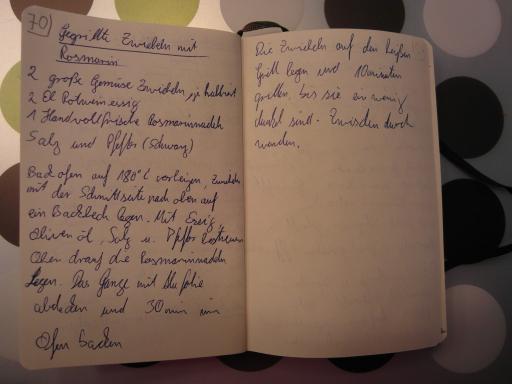 70)
Gegrillte Zwiebeln mit
Rosmarin
2 große Gemüse Zwiebeln, je halbiert
2 El Rotweinessig
1 Handvoll frische Rosmarinnadeln
Salz und Pfeffer (Schwarz)
Backofen auf 180°C vorheizen, Zwiebeln
mit der Schnittseite nach oben auf
ein Backblech legen. Mit Essig,
Olivenöl, Salz u. Pfeffer bestreuen
Oben drauf die Rosmarinnadeln
legen. Das Ganze mit Alufolie
abdecken und 30 min im
Ofen backen
Die Zwiebeln auf den heißen
Grill legen und 10 minuten
grillen, bis sie ein wenig
dunkel sind. Zwischen durch
wenden.